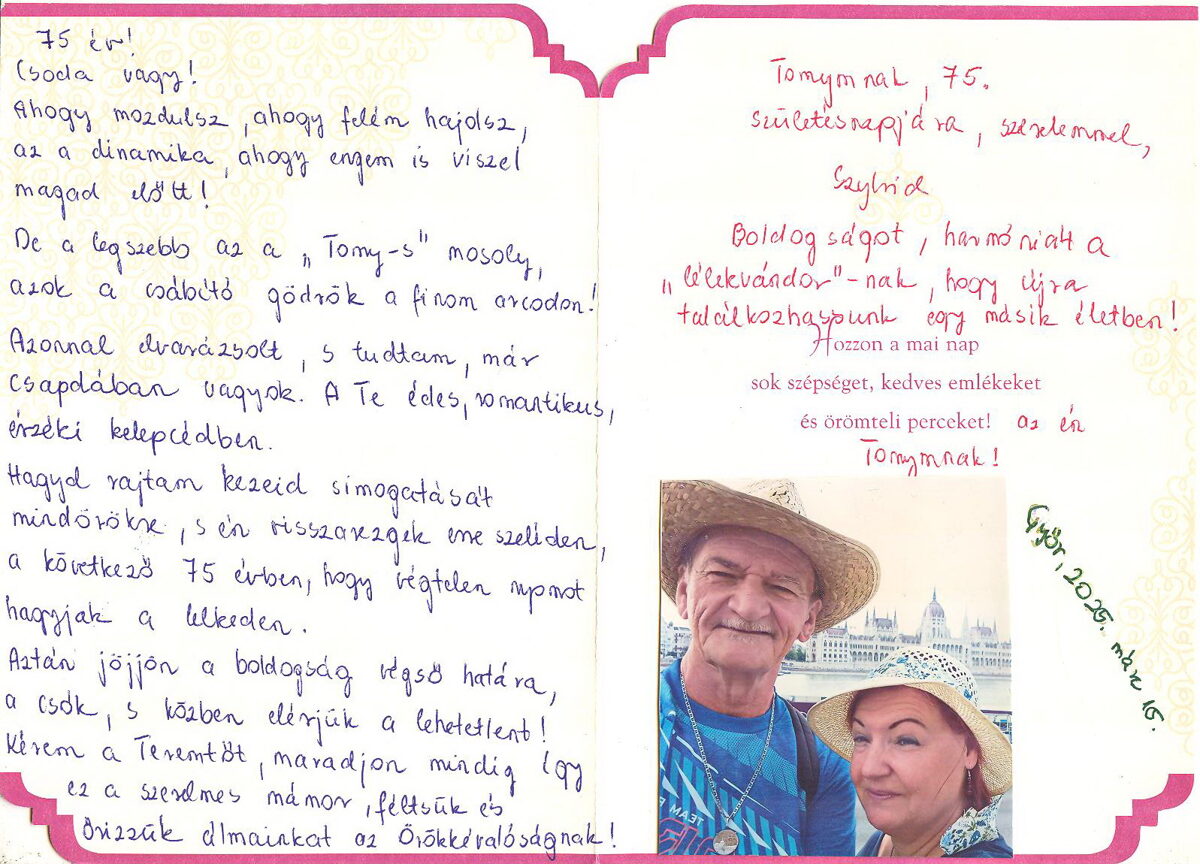 75 év!
Csoda vagy!
Ahogy mozdulsz, ahogy felém hajolsz,
az a dinamika, ahogy engem is viszel
magad előtt!
De a legszebb az a „Tomy-s" mosoly,
azok a csábító gödrök a finom arcodon!
Azonnal elvarázsolt, s tudtam, már
csapdában vagyok. A Te édes, romantikus,
érzéki kelepcédben.
Hagyd rajtam kezeid simogatását
mindörökre, s én visszarezgek erre szelíden,
a következő 75 évben, hogy végtelen nyomot
hagyjak a lelkeden.
Aztán jöjjön a boldogság végső határa,
a csók, s közben elérjük a lehetetlent!
Kérem a Teremtőt, maradjon mindig így
ez a szerelmes mámor, féltsük és
őrizzük álmainkat az Örökkévalóságnak!
Tomymnak, 75.
születésnapjára, szerelemmel,
Szylvid
Boldogságot, harmóniát a
„lélekvándor"-nak, hogy újra
találkozhassunk egy másik életben!
Hozzon a mai nap
sok szépséget, kedves emlékeket
és örömteli perceket! az én
Tomymnak!
Győr, 2025. márc 16.
TEAM